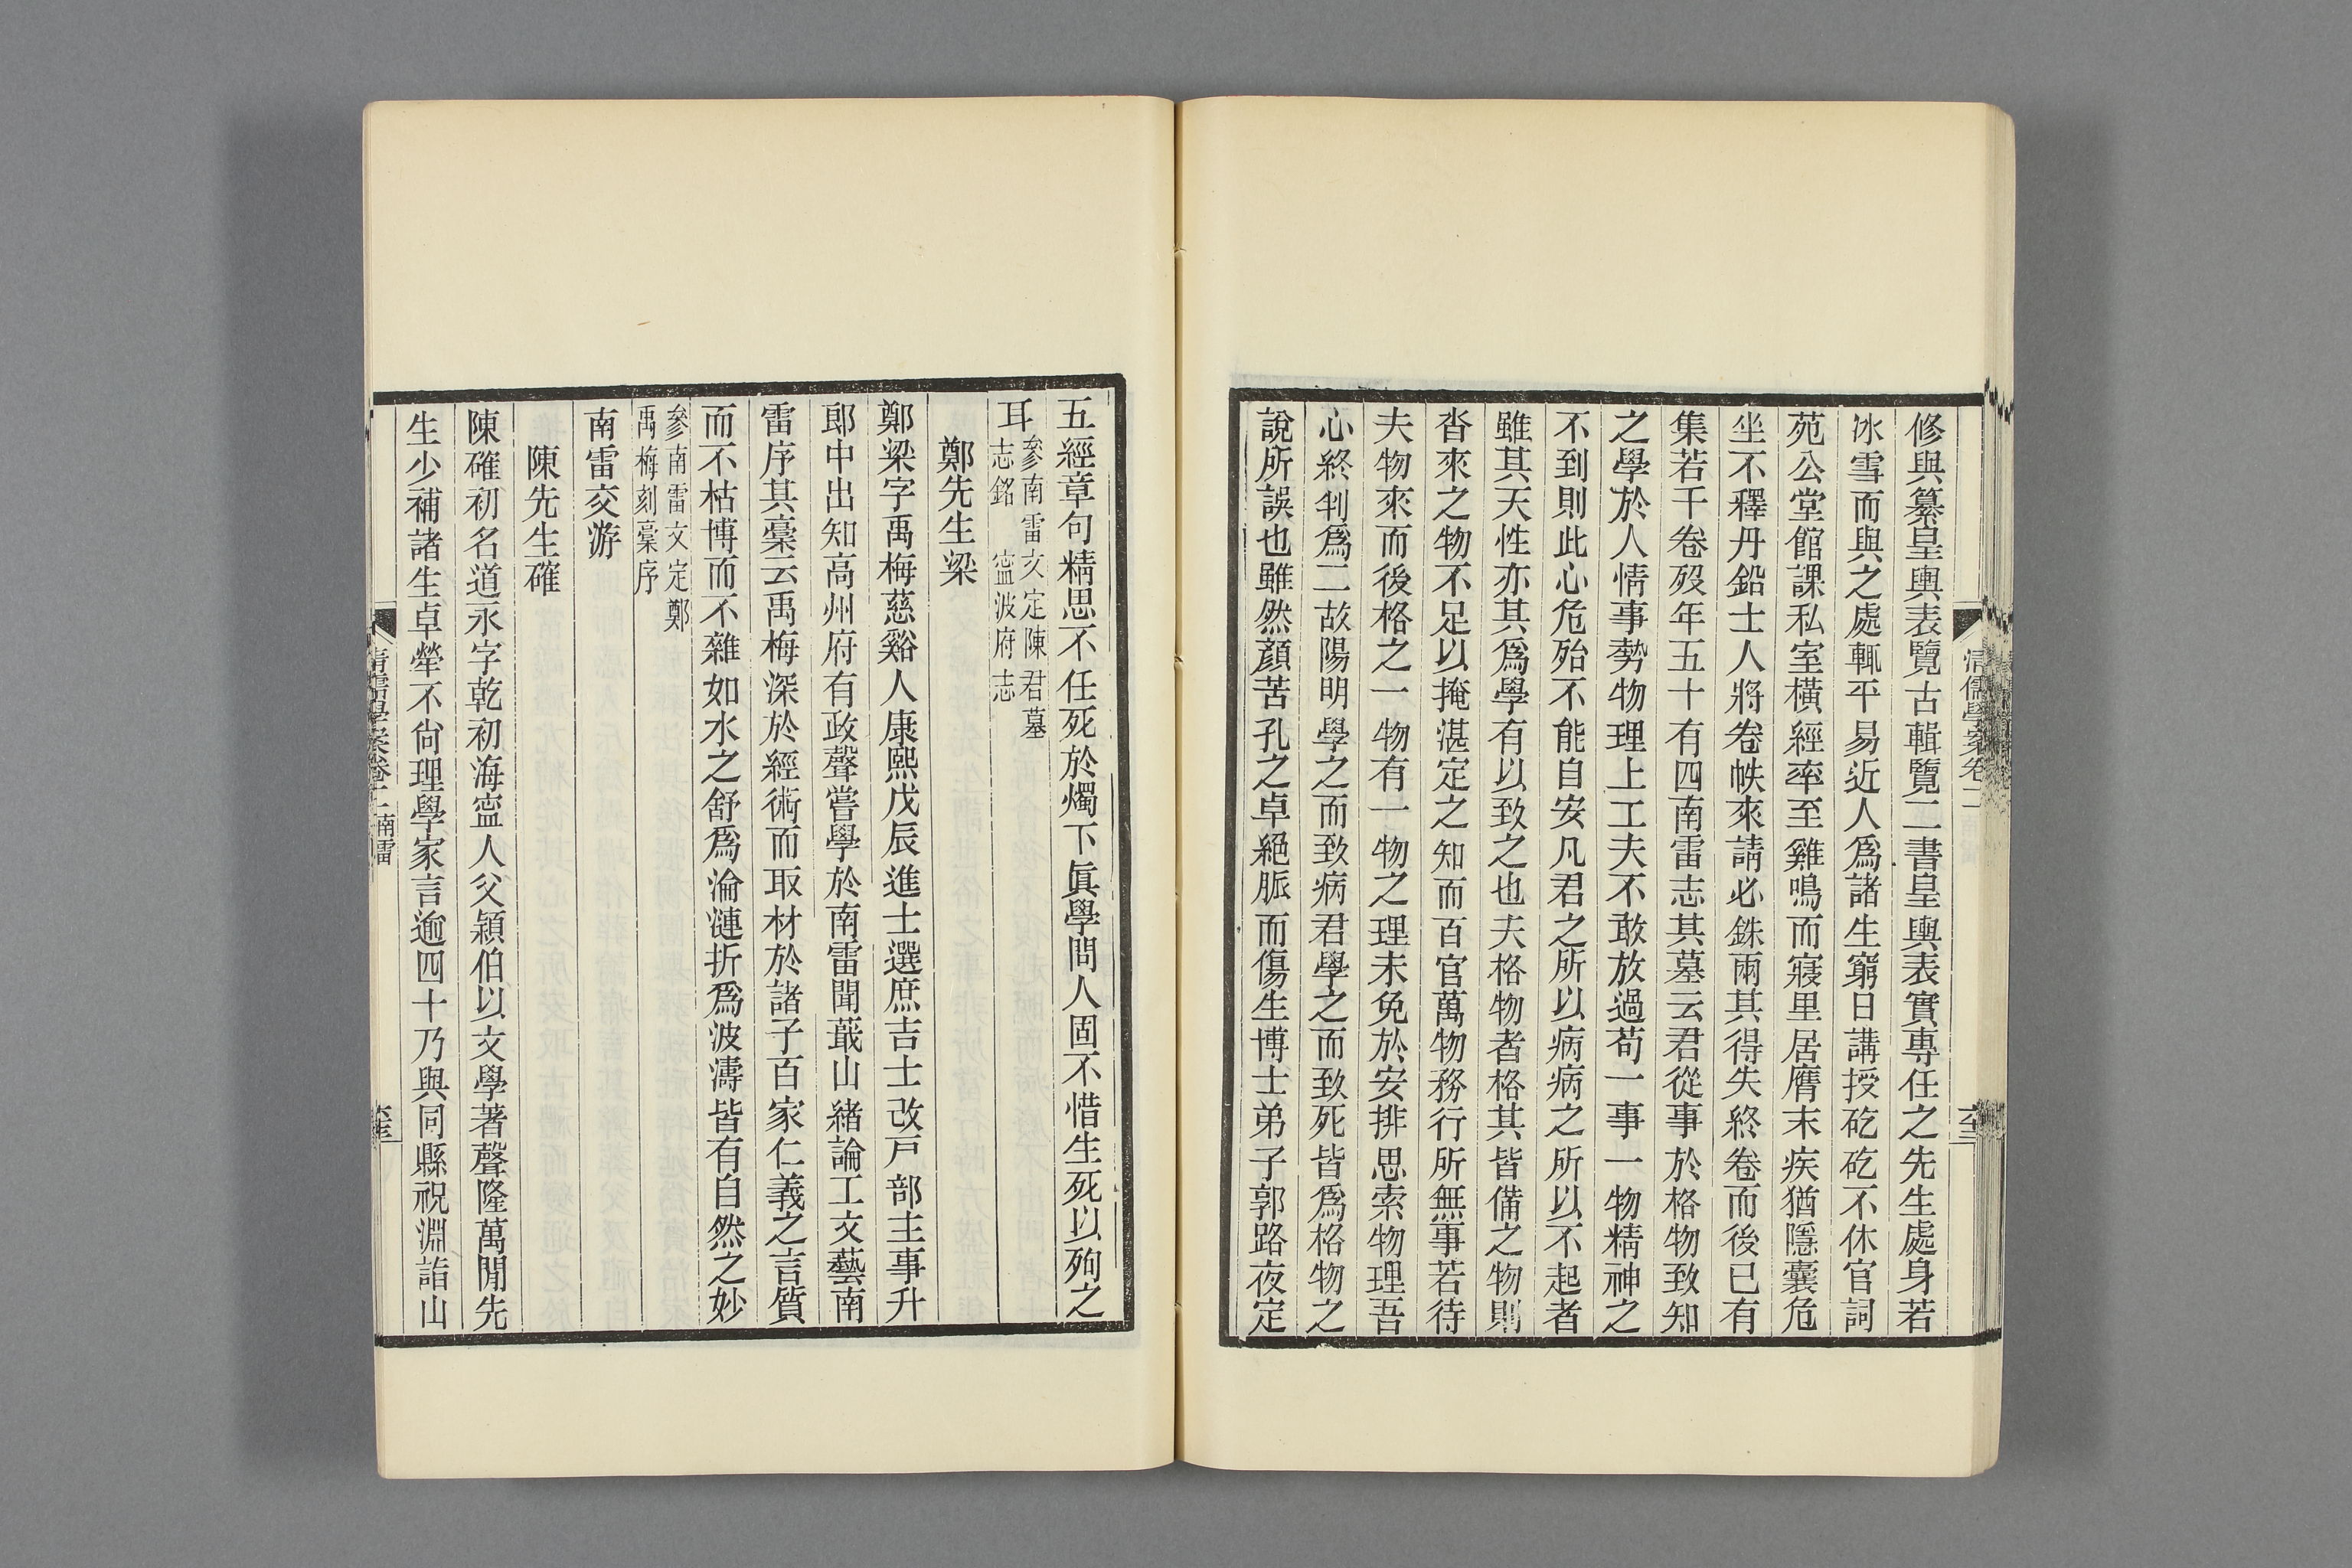 修與纂皇輿表覽古輯覽二書皇輿表實專任之先生處身若
冰雪而與之處輒平易近人爲諸生窮日講授矻矻不休官詞
苑公堂館課私室橫經率至雞鳴而寢里居膺末疾猶隱囊危
坐不釋丹鉛士人將卷帙來請必銖兩其得失終卷而後已有
集若干卷歿年五十有四南雷志其墓云君從事於格物致知
之學於人情事勢物理上工夫不敢放過苟一事一物精神之
不到則此心危殆不能自安凡君之所以病病之所以不起者
雖其天性亦其爲學有以致之也夫格物者格其皆備之物則
沓來之物不足以掩湛定之知而百官萬物務行所無事若待
夫物來而後格之一物有一物之理未免於安排思索物理吾
心終判爲二故陽明學之而致病君學之而致死皆爲格物之
說所誤也雖然顏苦孔之卓絕脈而傷生博士弟子郭路夜定
清儒學案卷二
五經章句精思不任死於燭下眞學問人固不惜生死以殉之
耳參南雷文定陳君墓
志銘 寍波府志
鄭先生梁
鄭梁字禹梅慈谿人康熙戊辰進士選庶吉士改戶部主事升
郎中出知高州府有政聲嘗學於南雷聞蕺山緒論工文藝南
雷序其稾云禹梅深於經術而取材於諸子百家仁義之言質
而不枯博而不雜如水之舒爲淪漣折爲波濤皆有自然之妙
參南雷文定鄭
禹梅刻稾序
南雷交游
陳先生確
陳確初名道永字乾初海寍人父穎伯以文學著聲隆萬閒先
生少補諸生卓犖不尙理學家言逾四十乃與同縣祝淵詣山
清儒學案卷二 南雷